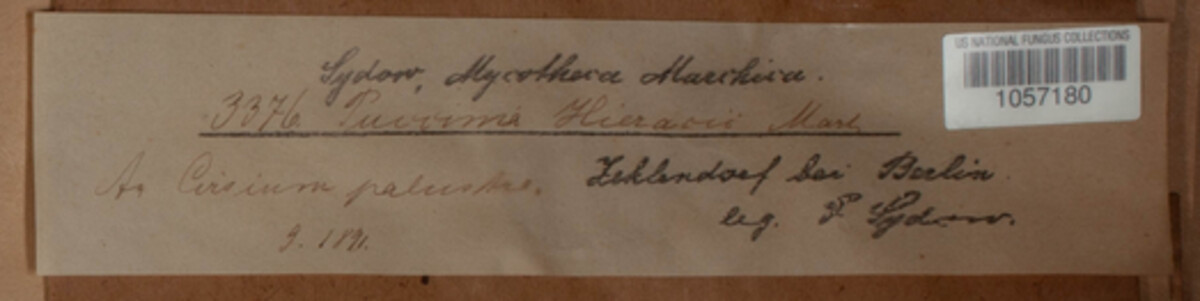 Sydow, Mycotheca Marchica.
US NATIONAL FUNGUS COLLECTIONS
1057180
3376. Puccinia Hieracii Mart.
An Cirsium palustre. Zehlendorf bei Berlin.
9. 1891. leg. P Sydow.